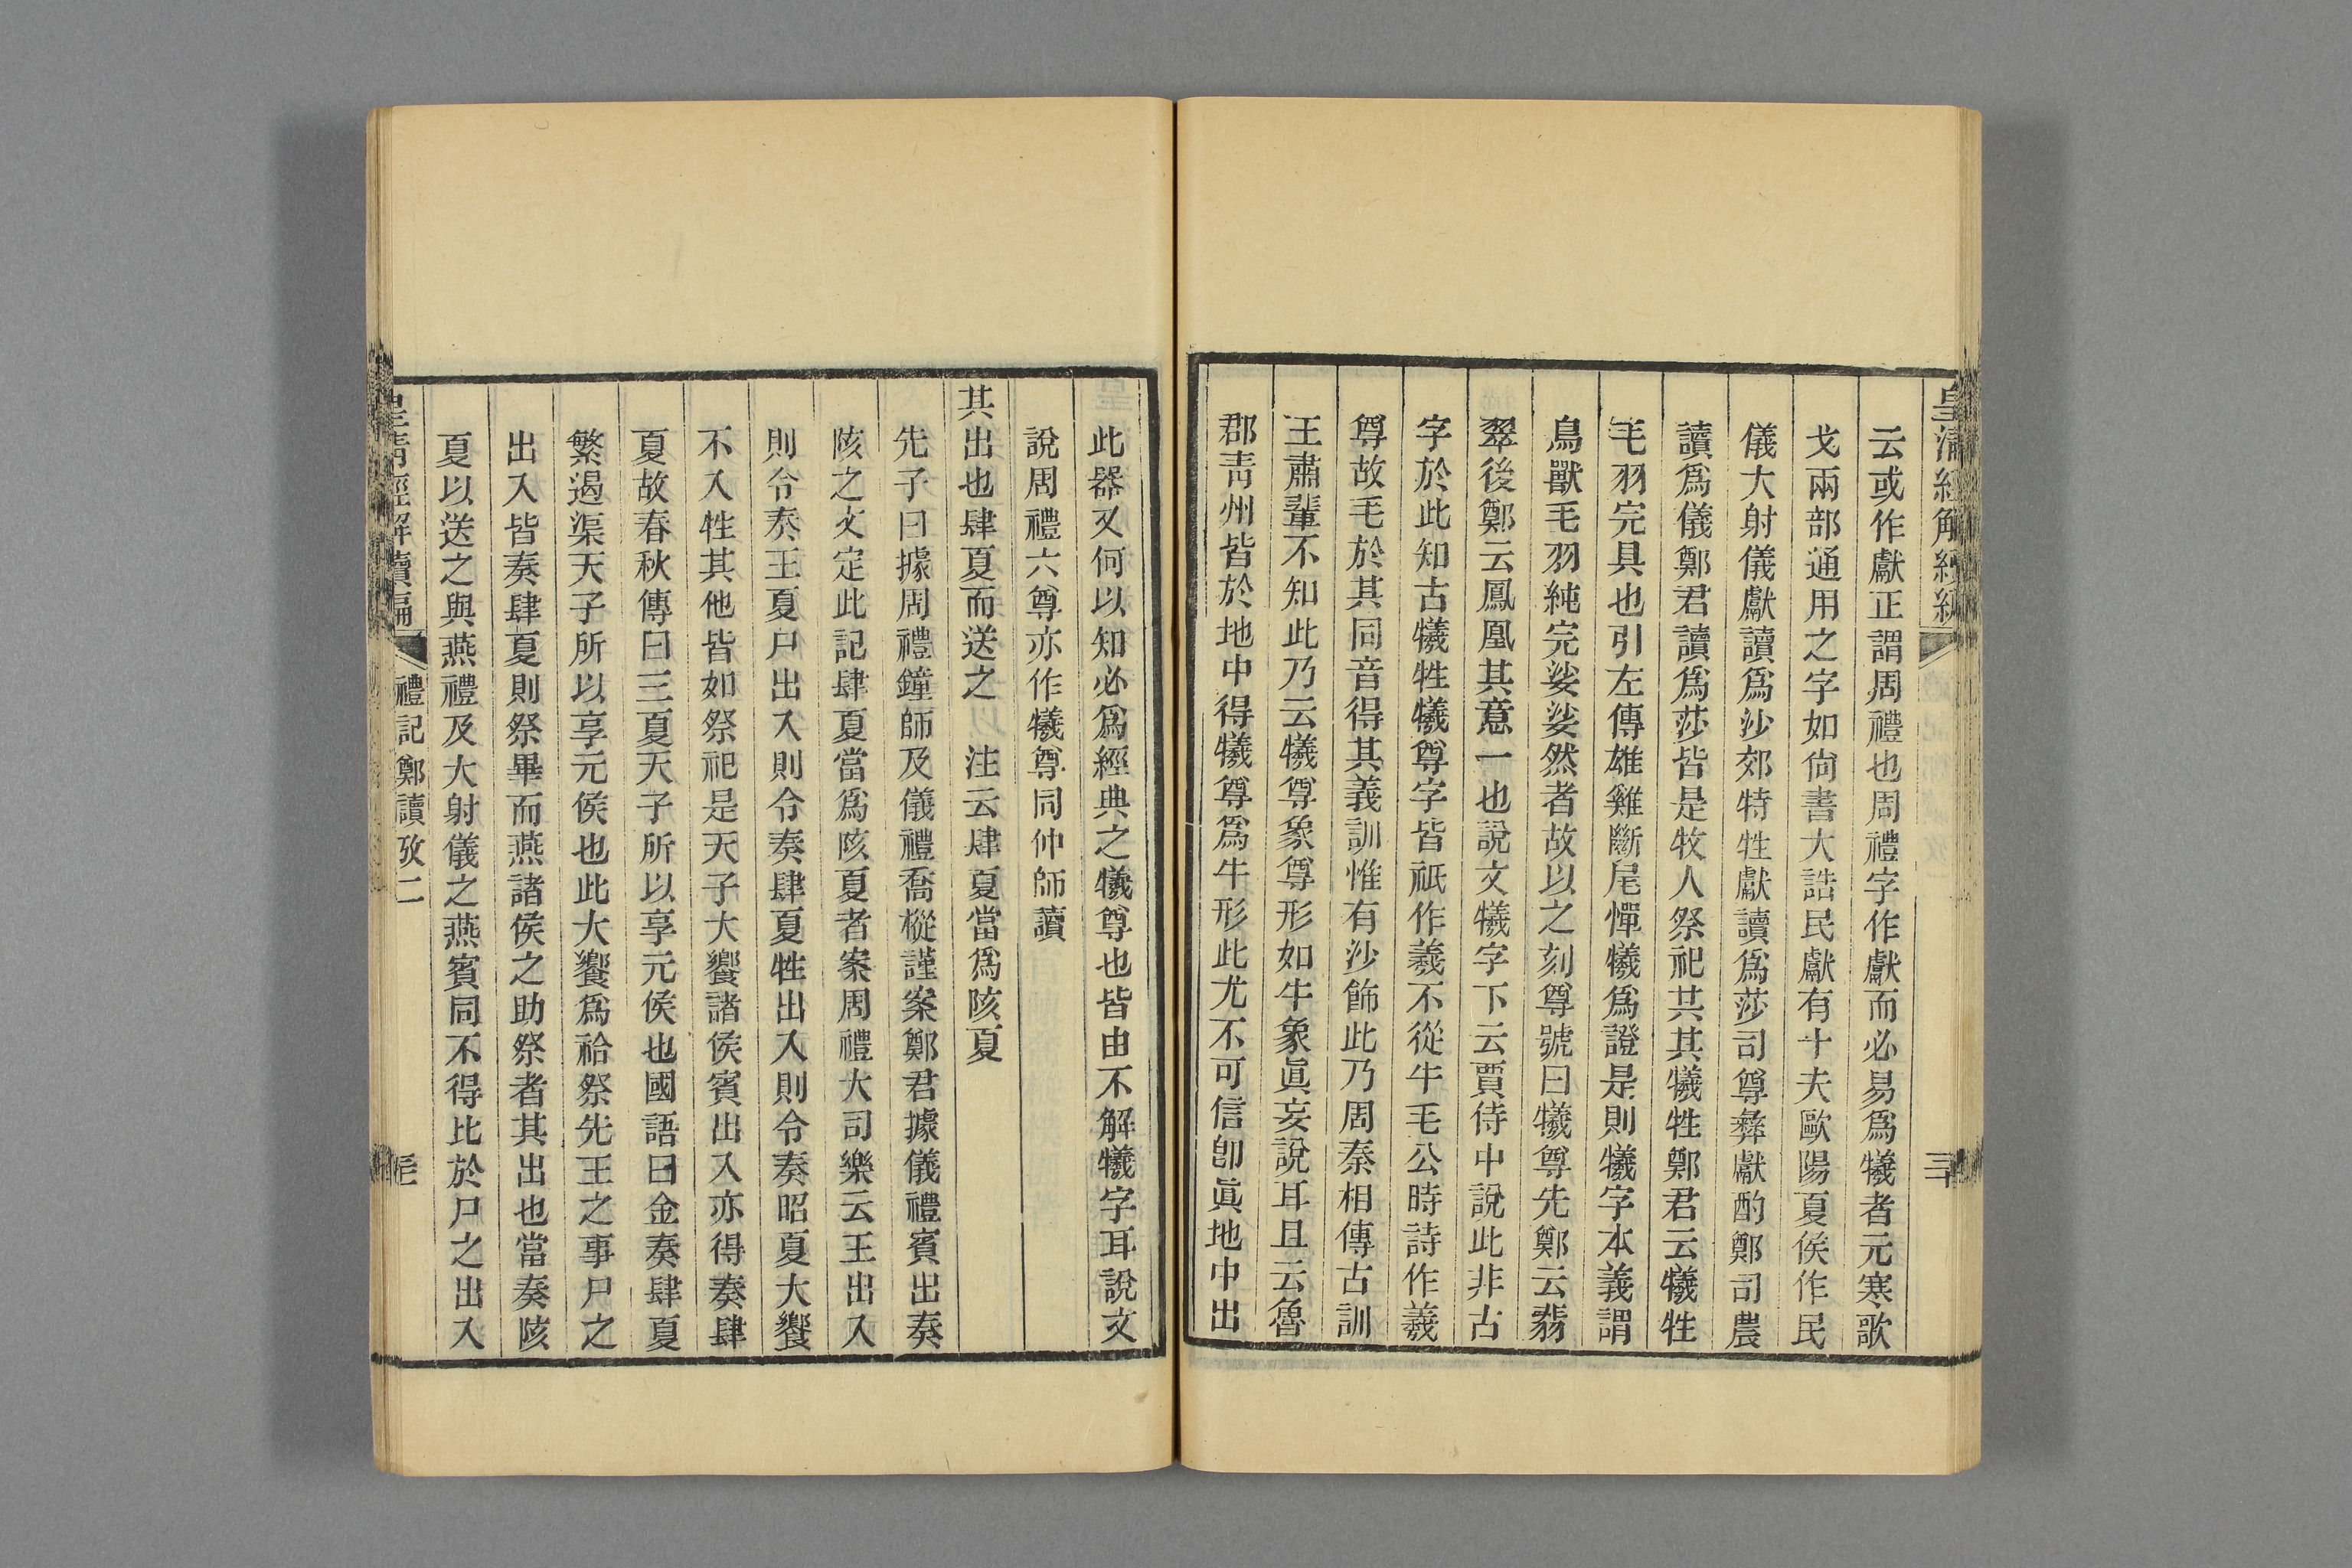 皇清經解續編
三十
云或作獻正謂周禮也周禮字作獻而必易爲犧者元寒歌
戈兩部通用之字如尙書大誥民獻有十夫歐陽夏侯作民
儀大射儀獻讀爲沙郊特牲獻讀爲莎司尊彝獻酌鄭司農
讀爲儀鄭君讀爲莎皆是牧人祭祀共其犧牲鄭君云犧牲
毛羽完具也引左傳雄雞斷尾憚犧爲證是則犧字本義謂
鳥獸毛羽純完娑娑然者故以之刻尊號曰犧尊先鄭云翡
翠後鄭云鳳凰其意一也說文犧字下云賈侍中說此非古
字於此知古犧牲犧尊字皆祇作羲不從牛毛公時詩作羲
尊故毛於其同音得其義訓惟有沙飾此乃周秦相傳古訓
王肅輩不知此乃云犧尊象尊形如牛象眞妄說耳且云魯
郡靑州皆於地中得犧尊爲牛形此尤不可信卽眞地中出
此器又何以知必爲經典之犧尊也皆由不解犧字耳說文
說周禮六尊亦作犧尊同仲師讀
其出也肆夏而送之 注云肆夏當爲陔夏
先子曰據周禮鐘師及儀禮喬樅謹案鄭君據儀禮賓出奏
陔之文定此記肆夏當爲陔夏者案周禮大司樂云王出入
則令奏王夏尸出入則令奏肆夏牲出入則令奏昭夏大饗
不入牲其他皆如祭祀是天子大饗諸侯賓出入亦得奏肆
夏故春秋傳曰三夏天子所以享元侯也國語曰金奏肆夏
繁遏渠天子所以享元侯也此大饗爲祫祭先王之事尸之
出入皆奏肆夏則祭畢而燕諸侯之助祭者其出也當奏陔
夏以送之與燕禮及大射儀之燕賓同不得比於尸之出入
皇清經解續編
禮記鄭讀攷二